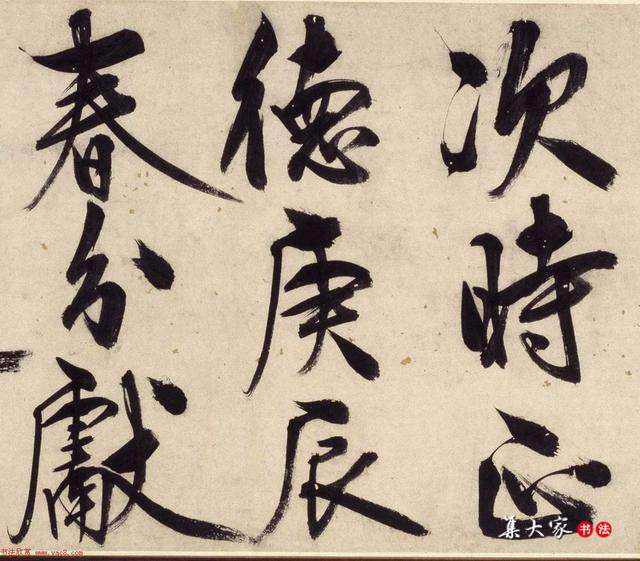 次時正
德庚辰
春分獻
集大家书法
书法欣赏 www.yac8.com